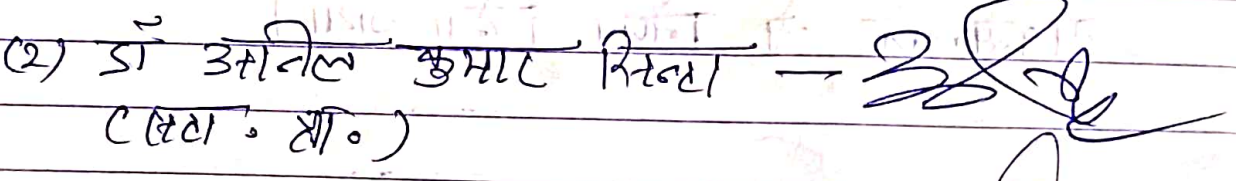 (2) डॉ अनिल कुमार सिन्हा –
(सहा. प्रा.)